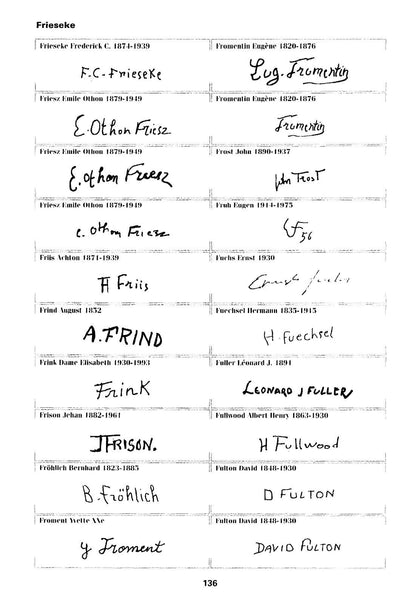 Frieseke
Frieseke Frederick C. 1874-1939
F.C. Frieseke
Friesz Emile Othon 1879-1949
E. Othon Friesz
Friesz Emile Othon 1879-1949
E. Othon Friesz
Friesz Emile Othon 1879-1949
E. Othon Friesz
Friis Achton 1871-1939
A Friis
Frind August 1852
A. FRIND
Frink Dame Elisabeth 1930-1993
Frink
Frison Jehan 1882-1961
J FRISON.
Fröhlich Bernhard 1823-1885
B. Fröhlich
Froment Yvette XXe
y Froment
Fromentin Eugène 1820-1876
Eug. Fromentin
Fromentin Eugène 1820-1876
Fromentin
Frost John 1890-1937
John Frost
Fruh Eugen 1914-1975
F 56
Fuchs Ernst 1930
Ernst Fuchs
Fuechsel Hermann 1835-1915
H. Fuechsel
Fuller Léonard J. 1891
LEONARD J FULLER
Fullwood Albert Henry 1863-1930
H Fullwood
Fulton David 1848-1930
D FULTON
Fulton David 1848-1930
DAVID FULTON
136